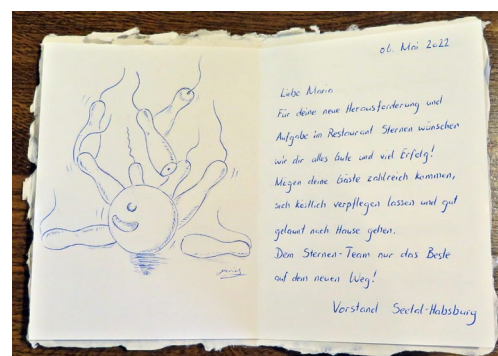 06. Mai 2022
Liebe Maria
Für deine neue Herausforderung und
Aufgabe im Restaurant Sternen wünschen
wir dir alles Gute und viel Erfolg!
Mögen deine Gäste zahlreich kommen,
sich köstlich verpflegen lassen und gut
gelaunt nach Hause gehen.
Dem Sternen-Team nur das Beste
auf dem neuen Weg!
Vorstand Seetal-Habsburg